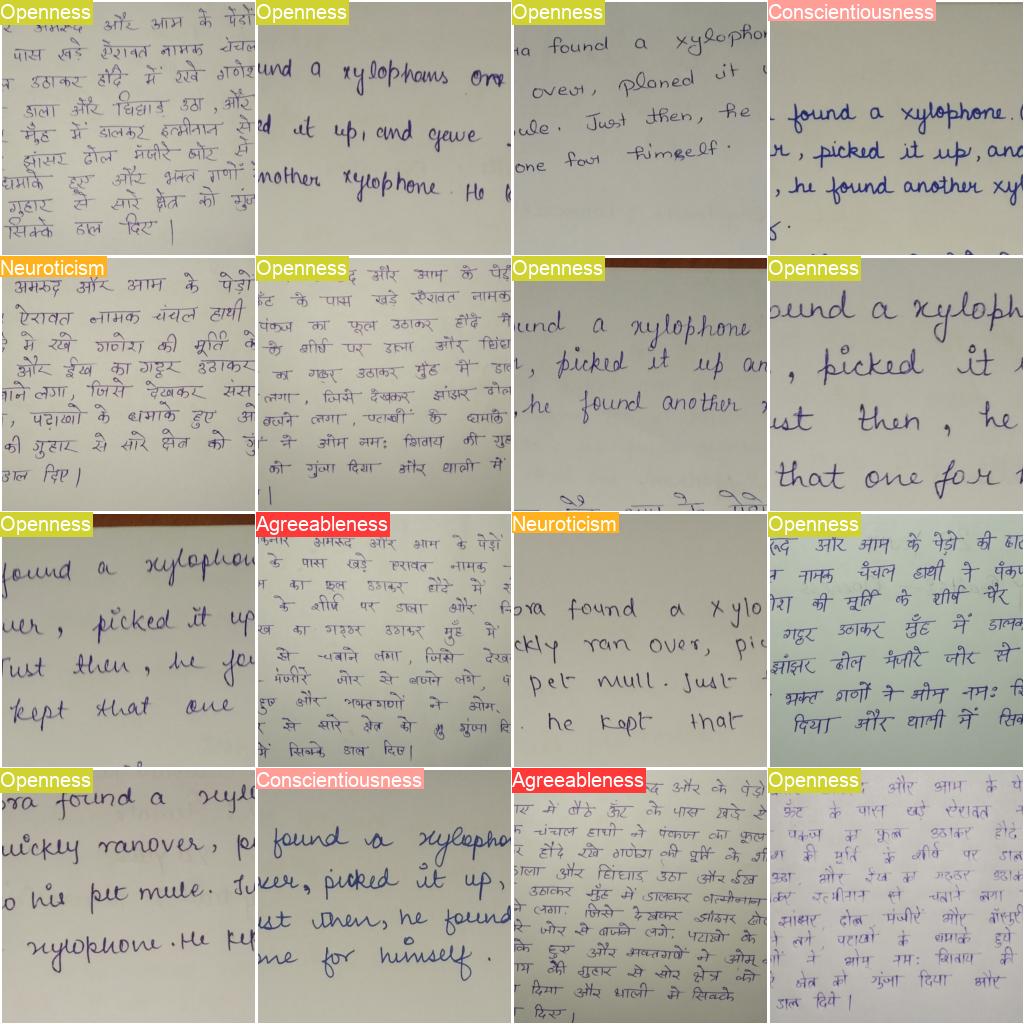 Openness
अमरूद और आम के पेड़ों
पास खड़े ऐरावत नामक चंचल
उठाकर हौदे में रखे गणेश
डाला और चिंघाड़ उठा, और
मुँह में डालकर इत्मीनान से
झांसर ढोल मंजीरे जोर से
धमाके हुए और भक्त गणों
गुहार से सारे क्षेत्र को गुंज
सिक्के डाल दिए |
Openness
found a xylophans one
it up, and gave
another xylophone. He
Openness
found a xylophon
over, planed it
ule. Just then, he
one for himself.
Conscientiousness
found a xylophone.
, picked it up, and
, he found another xyl
Neuroticism
अमरूद और आम के पेड़ों
ऐरावत नामक चंचल हाथी
मे रखे गणेश की मूर्ति के
और ईख का गट्ठर उठाकर
लगा, जिसे देखकर संस
, पटाखो के धमाके हुए ओ
की गुहार से सारे क्षेत्र को गुं
डाल दिए |
Openness
और आम के पेड़
ऊँट के पास खड़े ऐरावत नामक
पंकज का फूल उठाकर हौदे में
के शीर्ष पर डाला और चिंघ
का गट्ठर उठाकर मुँह में डाल
लगा, जिसे देखकर झांझर ढोल
बजने लगा, पटाखों के धमाके
ने ओम नम: शिवाय की गुह
को गुंजा दिया और थाली में
|
Openness
und a xylophone
, picked it up an
, he found another
Openness
ound a xyloph
, picked it
ust then, he
that one for
Openness
found a xylophon
ver, picked it up
Just then, he fou
kept that one
Agreeableness
किनारे अमरूद और आम के पेड़ों
के पास खड़े ऐरावत नामक
का फूल उठाकर हौदे में
के शीर्ष पर डाला और
ख का गट्ठर उठाकर मुँह में
से चबाने लगा, जिसे देख
मंजीरे जोर से बजने लगे,
हुए और भक्तगणों ने ओम
से सारे क्षेत्र को गुंजा दि
में सिक्के डाल दिए|
Neuroticism
ora found a xylo
ckly ran over, pic
pet mull. Just
. he kept that
Openness
और आम के पेड़ो की
नामक चंचल हाथी ने पंकज
की मूर्ति के शीर्ष पैर
गट्ठर उठाकर मुँह में डालक
झांझर ढोल मंजीरे जोर से
भक्त गणों ने ओम नम: शि
दिया और थाली में सिक
Openness
ora found a xyl
uickly ranover, p
o his pet mule. Ju
xylophone. He kep
Conscientiousness
found a xylopho
ver, picked it up,
ust then, he found
me for himself.
Agreeableness
और के पेड़ो
में बैठे ऊँट के पास खड़े ऐ
चंचल हाथी ने पंकज का फूल
हौदे रखे गणेश की मूर्ति के शी
डाला और चिंघाड़ उठा और ईख
उठाकर मुँह में डालकर इत्मीनान
लगा. जिसे देखकर झांझर ढो
जोर से बजने लगे. पटाखो के
के हुए और भक्तगणों ने ओम
की गुहार से सोर क्षेत्र को
दिया और थाली मे सिक्के
दिए |
Openness
और आम के पे
ऊँट के पास खड़े ऐरावत
पंकज का फूल उठाकर हौदे
की मूर्ति के शीर्ष पर डाल
उठा, और ईख का गट्ठर उठाक
कर इत्मीनान से चबाने लगा
झांझर, ढोल, मंजीरें और बाँसुरी
लगे, पटाखों के धमाके हुये
ने ओम नम: शिवाय की
क्षेत्र को गुंजा दिया और
डाल दिये |